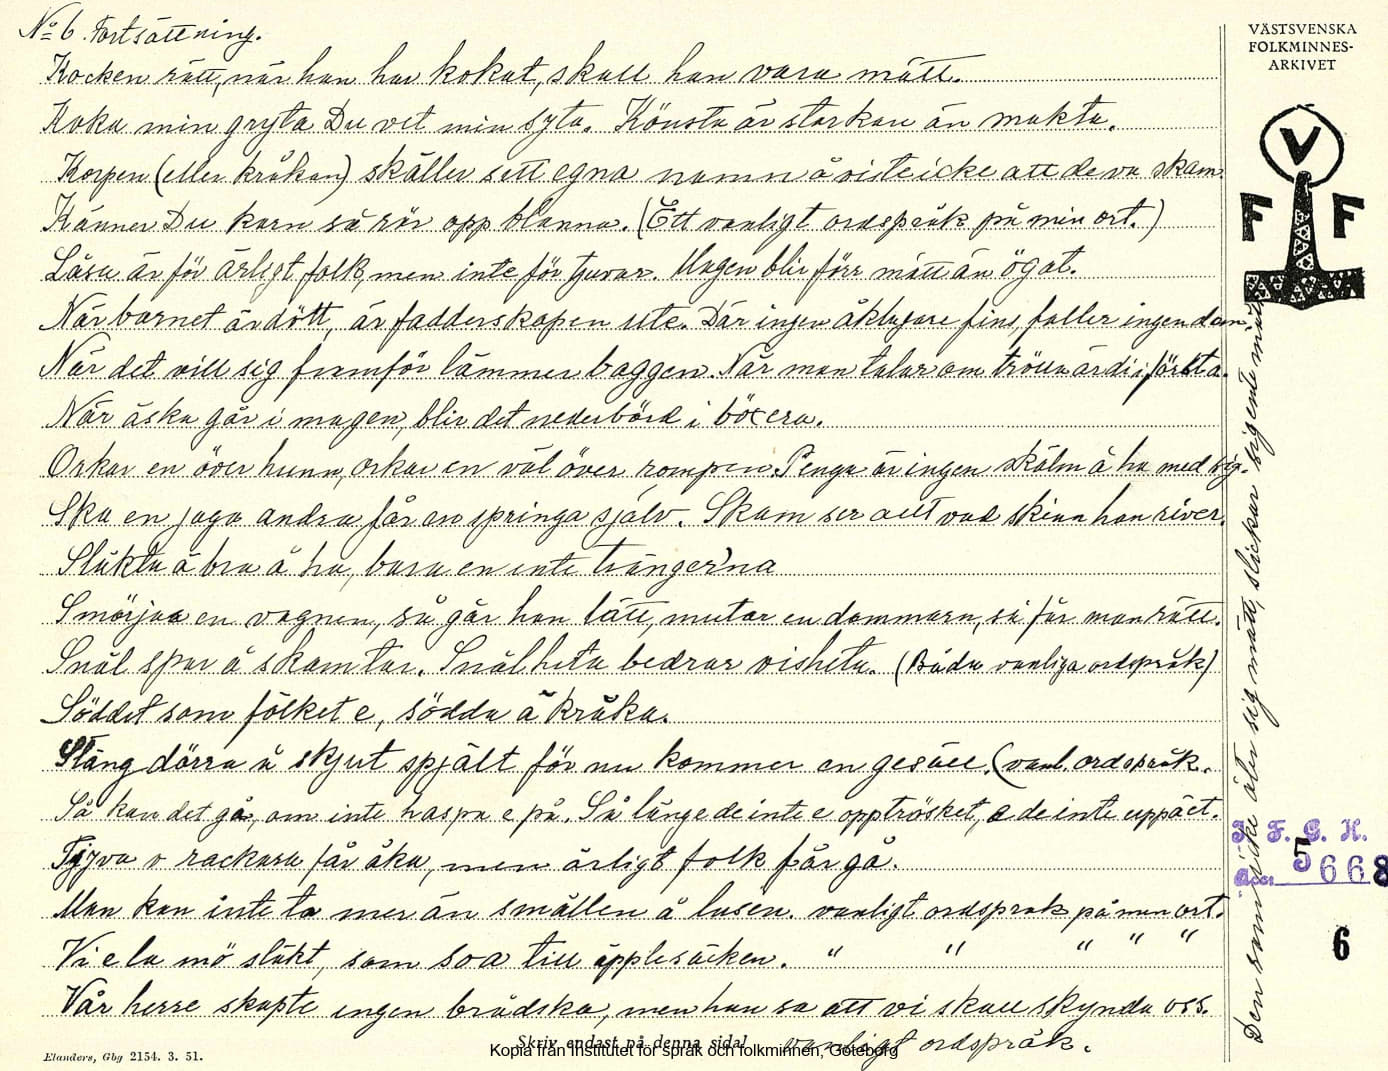 No 6. Fortsättning.
VÄSTSVENSKA
FOLKMINNES-
ARKIVET
V
F F
Kocken rätt, när han har kokat, skall han vara mätt.
Koka min gryta Du vet min syta. Könsta är starkare än makta.
Korpen (eller kråkan) skäller sett egna namn å viste icke att de va skam.
Känner Du karn så rör opp blanna. (Ett vanligt ordspråk på min ort.)
Låsa är för ärligt folk, men inte för tjuvar. Magen blir förr mätt än ögat.
När barnet är dött, är fadderskapen ute. Där ingen åklagare fins, faller ingen dom.
När det vill sig framför lämmer baggen. När man talar om trölla är di i förkta.
När åska går i magen, blir det nederbörd i böxera.
Orkar en över hunn, orkar en väl över rompen. Penga är ingen skälm å ha med sig.
Ska en jaga andra får en springa själv. Skam ser att vad skinn han river.
Släkta ä bra å ha, bara en inte tränger'na
Smörjaa en vagnen, så går han lätt, mutar en dommarn, så får man rätt.
Snål spar å skam tar. Snålheta bedrar visheta. (Båda vanliga ordspråk)
Söddet som fölket e, södda ä kråka.
Stäng dörra å skjut spjält för nu kommer en gesäll. (vanl. ordspråk.
Så kan det gå, om inte haspa e på. Så länge de inte e oppträsket, e de inte uppätt.
Tjyva o rackara får åka, men ärligt folk får gå.
Man kan inte ta mer än smällen å lusen. vanligt ordsprak på min ort.
Vi e la mö släkt, som soa till äpplesäcken. " " " " "
Vår herre skapte ingen brådska, men han sa att vi skall skynda oss.
vanligt ordspråk.
Den som icke äter sig mätt, slickar sig ente mätt.
I. F. G. H.
Acc: 5668
6
Skriv endast på denna sida!
Kopia från Institutet för språk och folkminnen, Göteborg
Elanders, Gbg 2154. 3. 51.